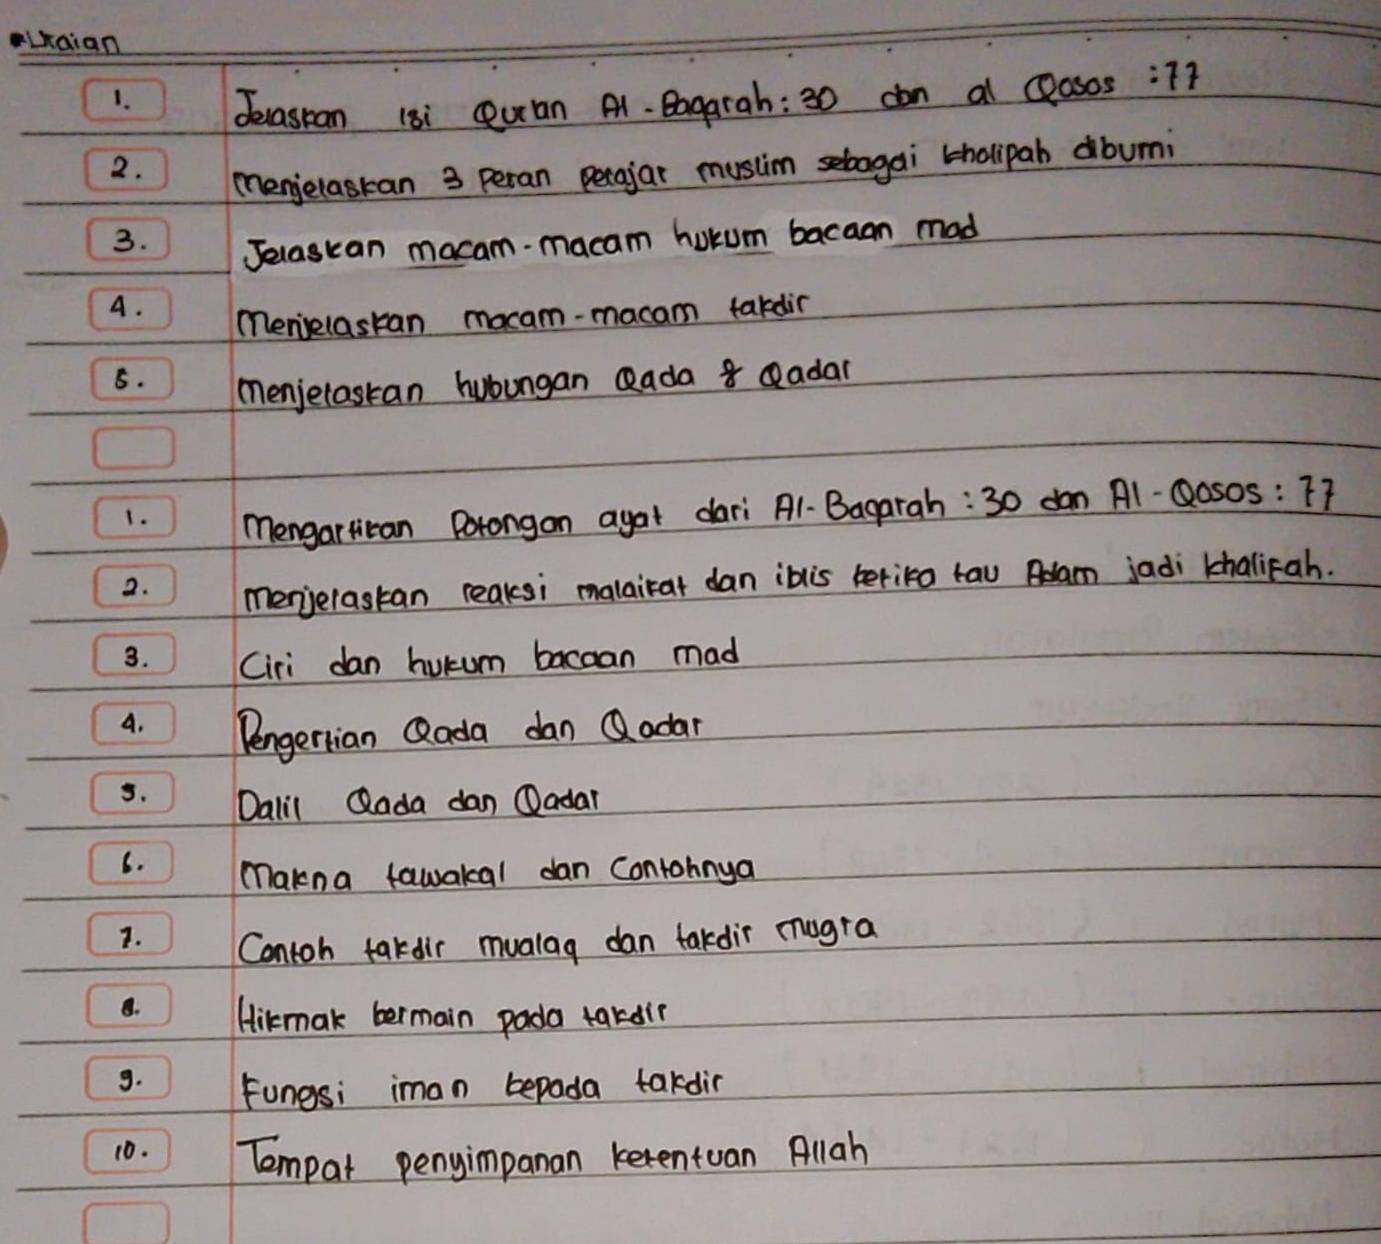 Uraian
1. Jelaskan isi Quran Al-Baqarah: 30 dan al Qosos :77
2. Menjelaskan 3 Peran pelajar muslim sebagai kholipah dibumi
3. Jelaskan macam-macam hukum bacaan mad
4. Menjelaskan macam-macam takdir
5. Menjelaskan hubungan Qada & Qadar
1. Mengartikan Potongan ayat dari Al-Baqarah : 30 dan Al-Qosos : 77
2. Menjelaskan reaksi malaikat dan iblis ketika tau Adam jadi khalifah.
3. Ciri dan hukum bacaan mad
4. Pengertian Qada dan Qadar
5. Dalil Qada dan Qadar
6. Makna tawakal dan Contohnya
7. Contoh takdir mualaq dan takdir mugra
8. Hikmak bermain pada takdir
9. Fungsi iman kepada takdir
10. Tempat penyimpanan ketentuan Allah